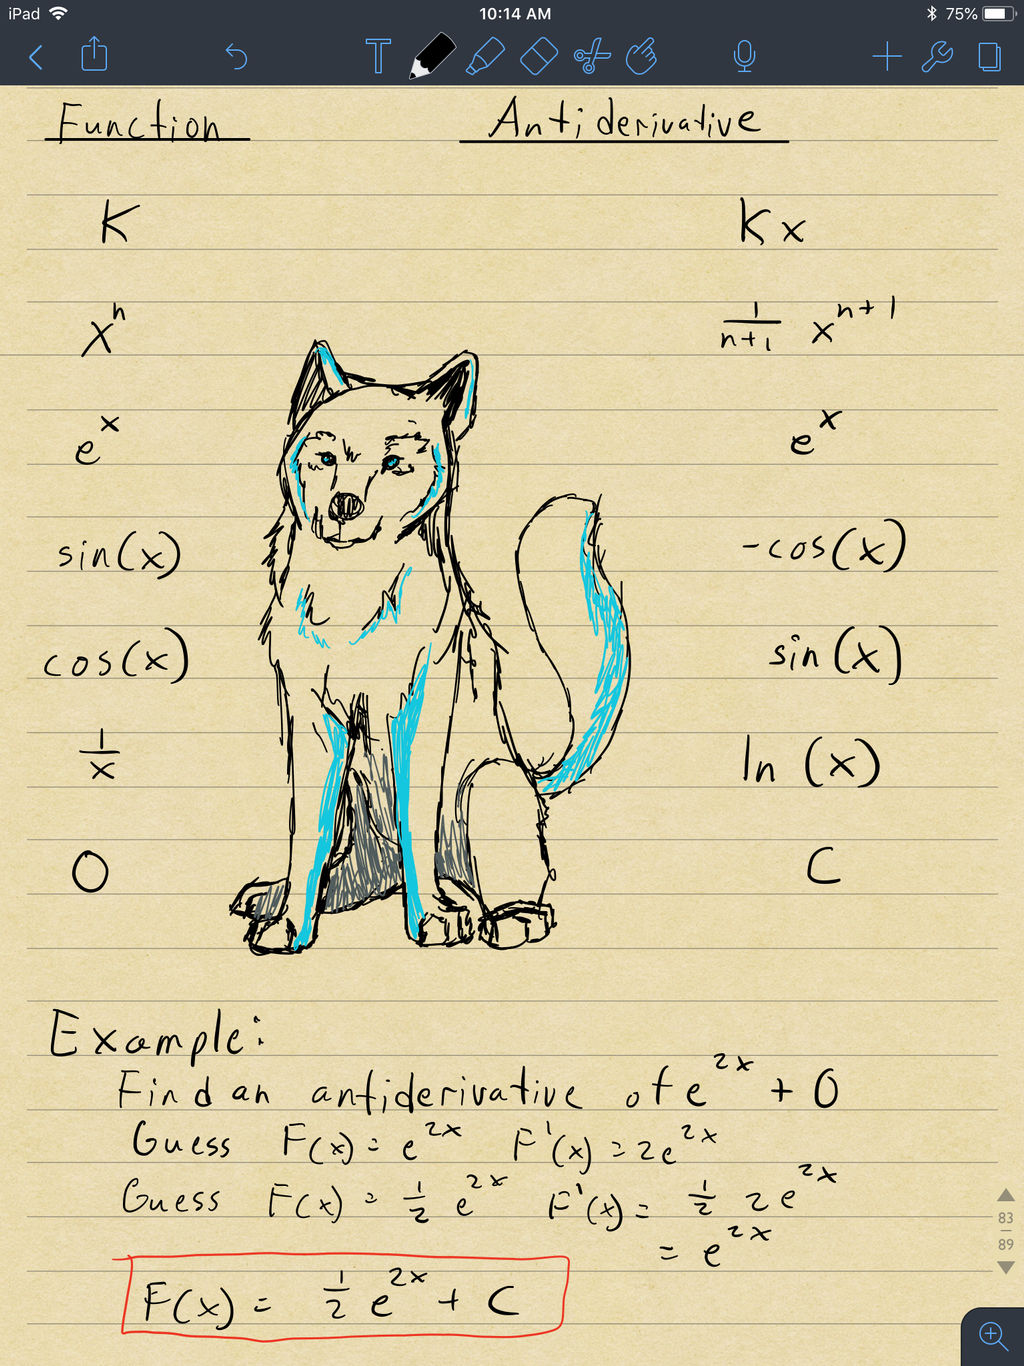 iPad 10:14 AM 75%
Function Antiderivative
K Kx
xⁿ 1/(n+1) xⁿ⁺¹
eˣ eˣ
sin(x) -cos(x)
cos(x) sin(x)
1/x ln(x)
0 C
Example:
Find an antiderivative of e²ˣ + 0
Guess F(x) = e²ˣ F'(x) = 2e²ˣ
Guess F(x) = 1/2 e²ˣ F'(x) = 1/2 2e²ˣ
= e²ˣ
F(x) = 1/2 e²ˣ + C
83
89